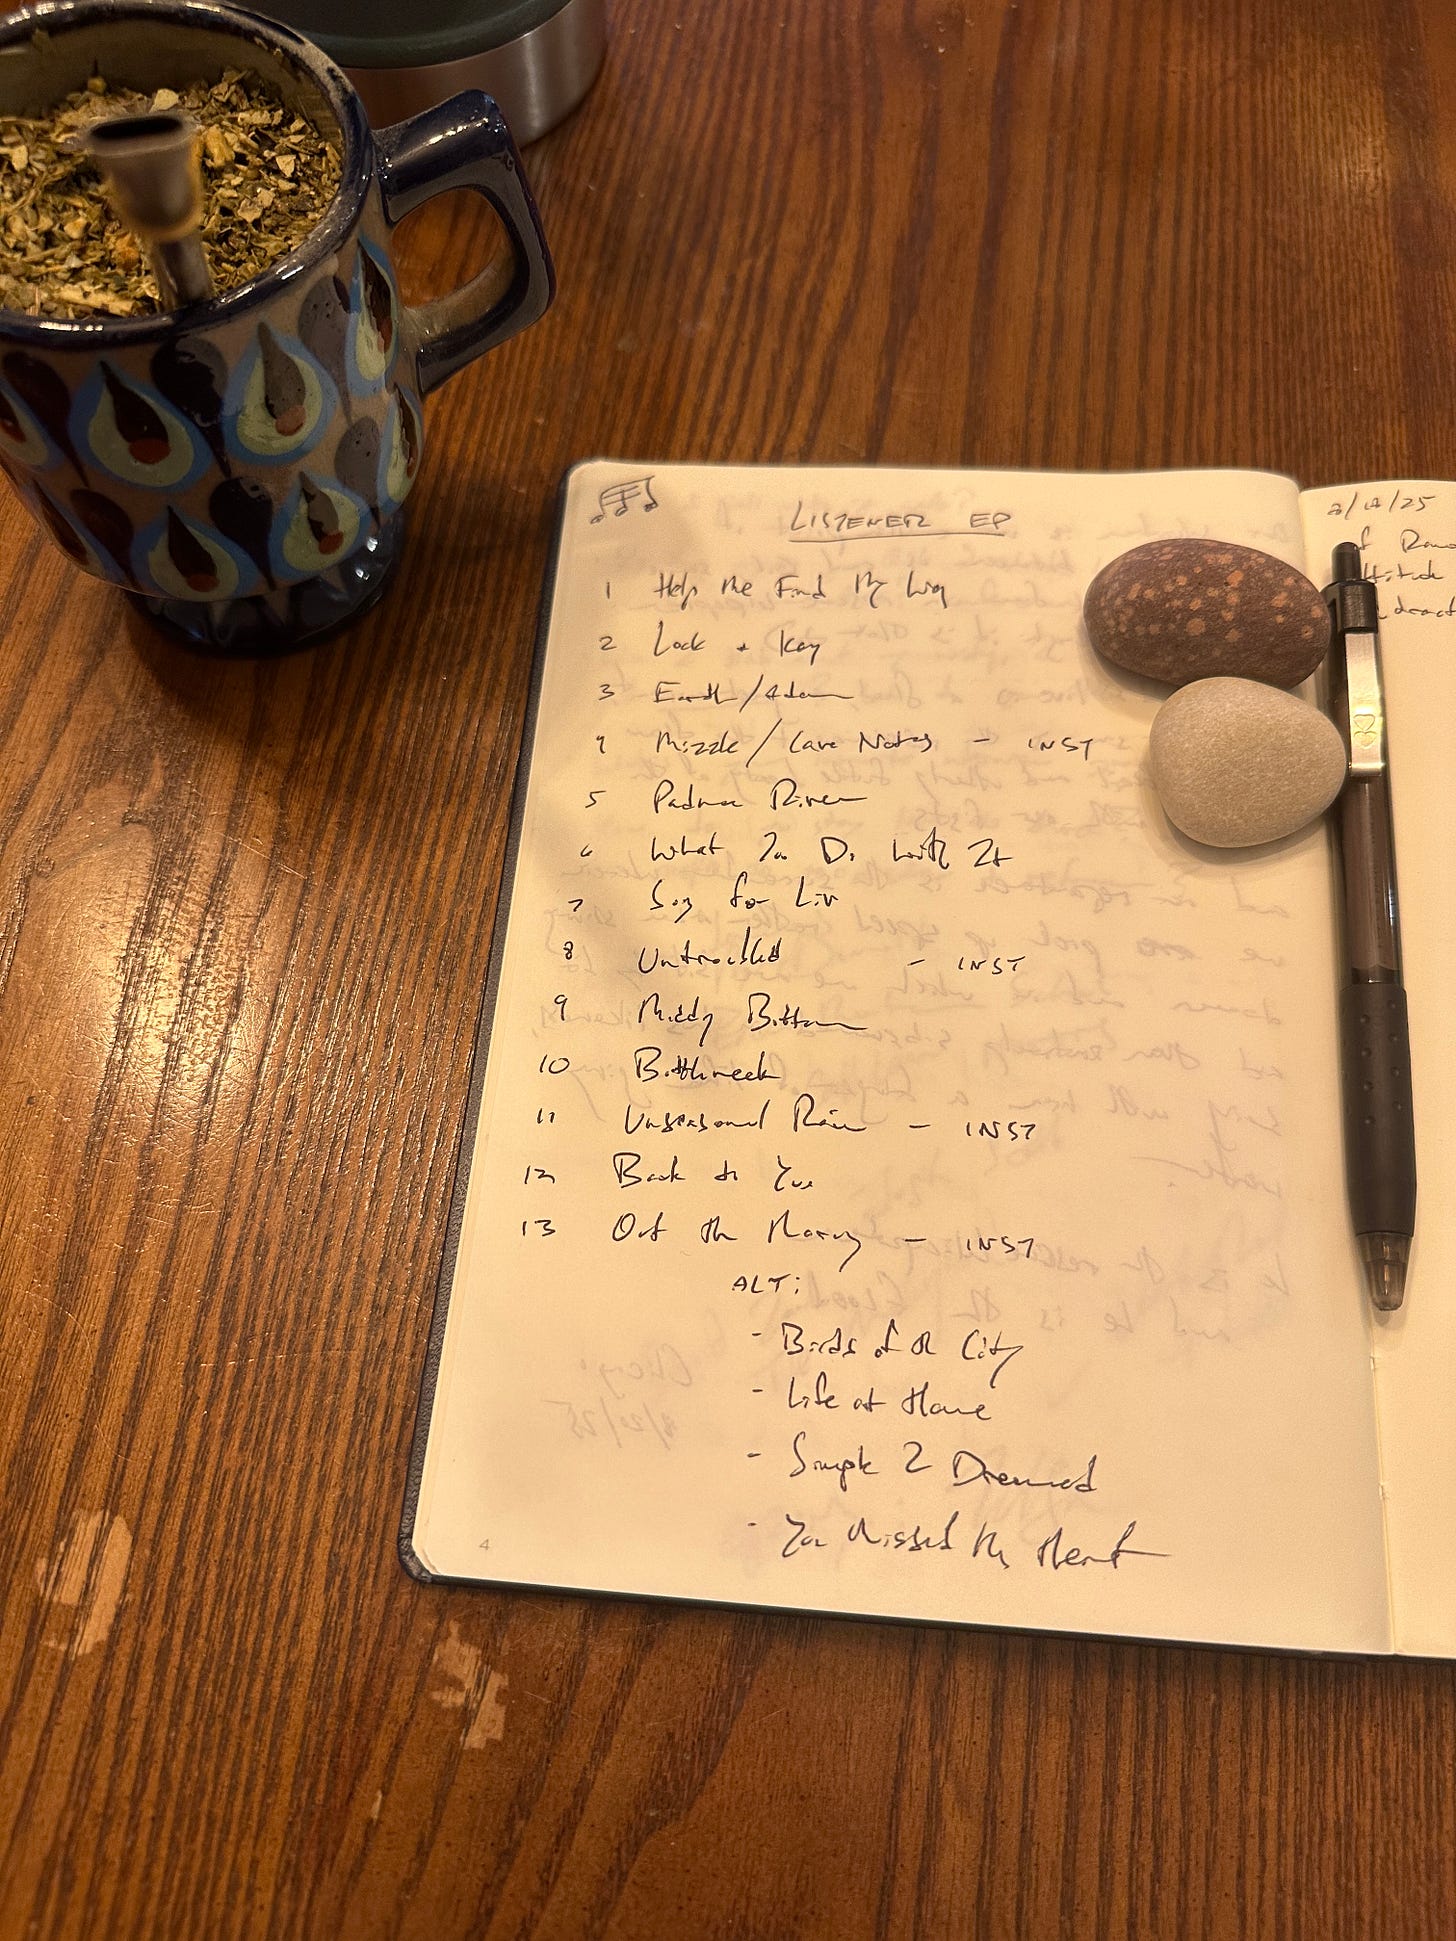 LISTENER EP
1 Help Me Find My Way
2 Lock + Key
3 Earth/Adam
4 Mizzle/Cave Notes - INST
5 Padma River
6 What To Do With It
7 Song for Liv
8 Untroubled - INST
9 Muddy Bottom
10 Bottleneck
11 Unseasonal Rain - INST
12 Back to You
13 Out the - INST
ALT:
- Birds of the City
- Life at Home
- Simple 2 Dreamed
- You Missed My Heart
4